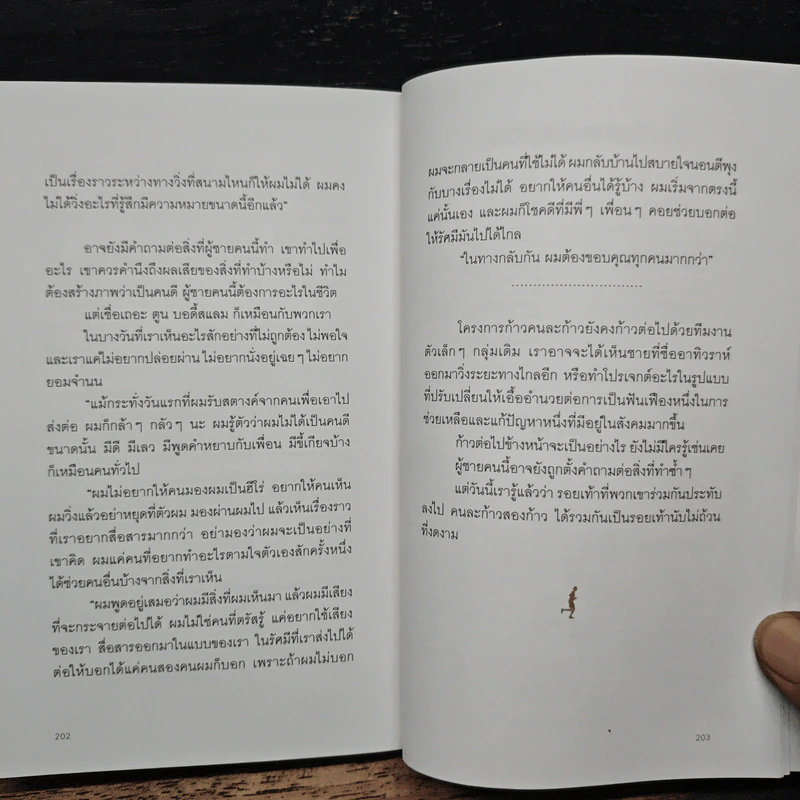 เป็นเรื่องราวระหว่างทางวิ่งที่สนามไหนก็ให้ผมไม่ได้ ผมคง
ไม่ได้วิ่งอะไรที่รู้สึกมีความหมายขนาดนี้อีกแล้ว”
อาจยังมีคำถามต่อสิ่งที่ผู้ชายคนนี้ทำ เขาทำไปเพื่อ
อะไร เขาควรคำนึงถึงผลเสียของสิ่งที่ทำบ้างหรือไม่ ทำไม
ต้องสร้างภาพว่าเป็นคนดี ผู้ชายคนนี้ต้องการอะไรในชีวิต
แต่เชื่อเถอะ ตูน บอดี้สแลม ก็เหมือนกับพวกเรา
ในบางวันที่เราเห็นอะไรสักอย่างที่ไม่ถูกต้อง ไม่พอใจ
และเราแค่ไม่อยากปล่อยผ่าน ไม่อยากนั่งอยู่เฉยๆ ไม่อยาก
ยอมจำนน
“แม้กระทั่งวันแรกที่ผมรับสตางค์จากคนเพื่อเอาไป
ส่งต่อ ผมก็กล้าๆ กลัวๆ นะ ผมรู้ตัวว่าผมไม่ได้เป็นคนดี
ขนาดนั้น มีดี มีเลว มีพูดคำหยาบกับเพื่อน มีขี้เกียจบ้าง
ก็เหมือนคนทั่วไป
“ผมไม่อยากให้คนมองผมเป็นฮีโร่ อยากให้คนเห็น
ผมวิ่งแล้วอย่าหยุดที่ตัวผม มองผ่านผมไป แล้วเห็นเรื่องราว
ที่เราอยากสื่อสารมากกว่า อย่ามองว่าผมจะเป็นอย่างที่
เขาคิด ผมแค่คนที่อยากทำอะไรตามใจตัวเองสักครั้งหนึ่ง
ได้ช่วยคนอื่นบ้างจากสิ่งที่เราเห็น
“ผมพูดอยู่เสมอว่าผมมีสิ่งที่ผมเห็นมา แล้วผมมีเสียง
ที่จะกระจายต่อไปได้ ผมไม่ใช่คนที่ตรัสรู้ แค่อยากใช้เสียง
ของเรา สื่อสารออกมาในแบบของเรา ในรัศมีที่เราส่งไปได้
ต่อให้บอกได้แค่คนสองคนผมก็บอก เพราะถ้าผมไม่บอก
202
ผมจะกลายเป็นคนที่ใช้ไม่ได้ ผมกลับบ้านไปสบายใจนอนตีพุง
กับบางเรื่องไม่ได้ อยากให้คนอื่นได้รู้บ้าง ผมเริ่มจากตรงนี้
แค่นั้นเอง และผมก็โชคดีที่มีพี่ๆ เพื่อนๆ คอยช่วยบอกต่อ
ให้รัศมีมันไปได้ไกล
“ในทางกลับกัน ผมต้องขอบคุณทุกคนมากกว่า”
..............................
โครงการก้าวคนละก้าวยังคงก้าวต่อไปด้วยทีมงาน
ตัวเล็กๆ กลุ่มเดิม เราอาจจะได้เห็นชายที่ชื่ออาทิวราห์
ออกมาวิ่งระยะทางไกลอีก หรือทำโปรเจกต์อะไรในรูปแบบ
ที่ปรับเปลี่ยนให้เอื้ออำนวยต่อการเป็นฟันเฟืองหนึ่งในการ
ช่วยเหลือและแก้ปัญหาหนึ่งที่มีอยู่ในสังคมมากขึ้น
ก้าวต่อไปข้างหน้าจะเป็นอย่างไร ยังไม่มีใครรู้เช่นเคย
ผู้ชายคนนี้อาจยังถูกตั้งคำถามต่อสิ่งที่ทำซ้ำๆ
แต่วันนี้เรารู้แล้วว่า รอยเท้าที่พวกเขาร่วมกันประทับ
ลงไป คนละก้าวสองก้าว ได้รวมกันเป็นรอยเท้านับไม่ถ้วน
ที่งดงาม
203